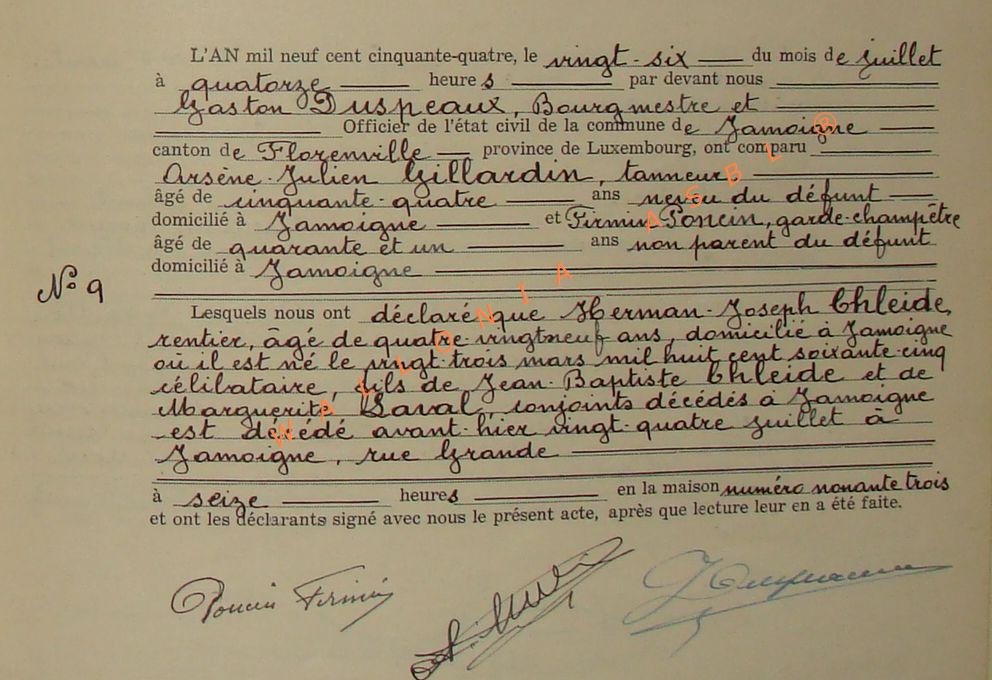 L'AN mil neuf cent cinquante-quatre, le vingt-six du mois de juillet
à quatorze heures par devant nous
Gaston Duspeaux, Bourgmestre et
Officier de l'état civil de la commune de Jamoigne
canton de Florenville province de Luxembourg, ont comparu
Arsène-Julien Gillardin, tanneur
âgé de cinquante-quatre ans neveu du défunt
domicilié à Jamoigne et Firmin Poncin, garde-champêtre
âgé de quarante et un ans non parent du défunt
domicilié à Jamoigne
N° 9
Lesquels nous ont déclaré que Herman-Joseph Chleide,
rentier, âgé de quatre-vingtneuf ans, domicilié à Jamoigne
où il est né le vingt-trois mars mil huit cent soixante-cinq
célibataire, fils de Jean-Baptiste Chleide et de
Marguerite Laval, conjoints décédés à Jamoigne
est décédé avant-hier vingt-quatre juillet à
Jamoigne, rue Grande
à seize heures en la maison numéro nonante trois
et ont les déclarants signé avec nous le présent acte, après que lecture leur en a été faite.
Poncin Firmin
WALLONIA ASBL ®